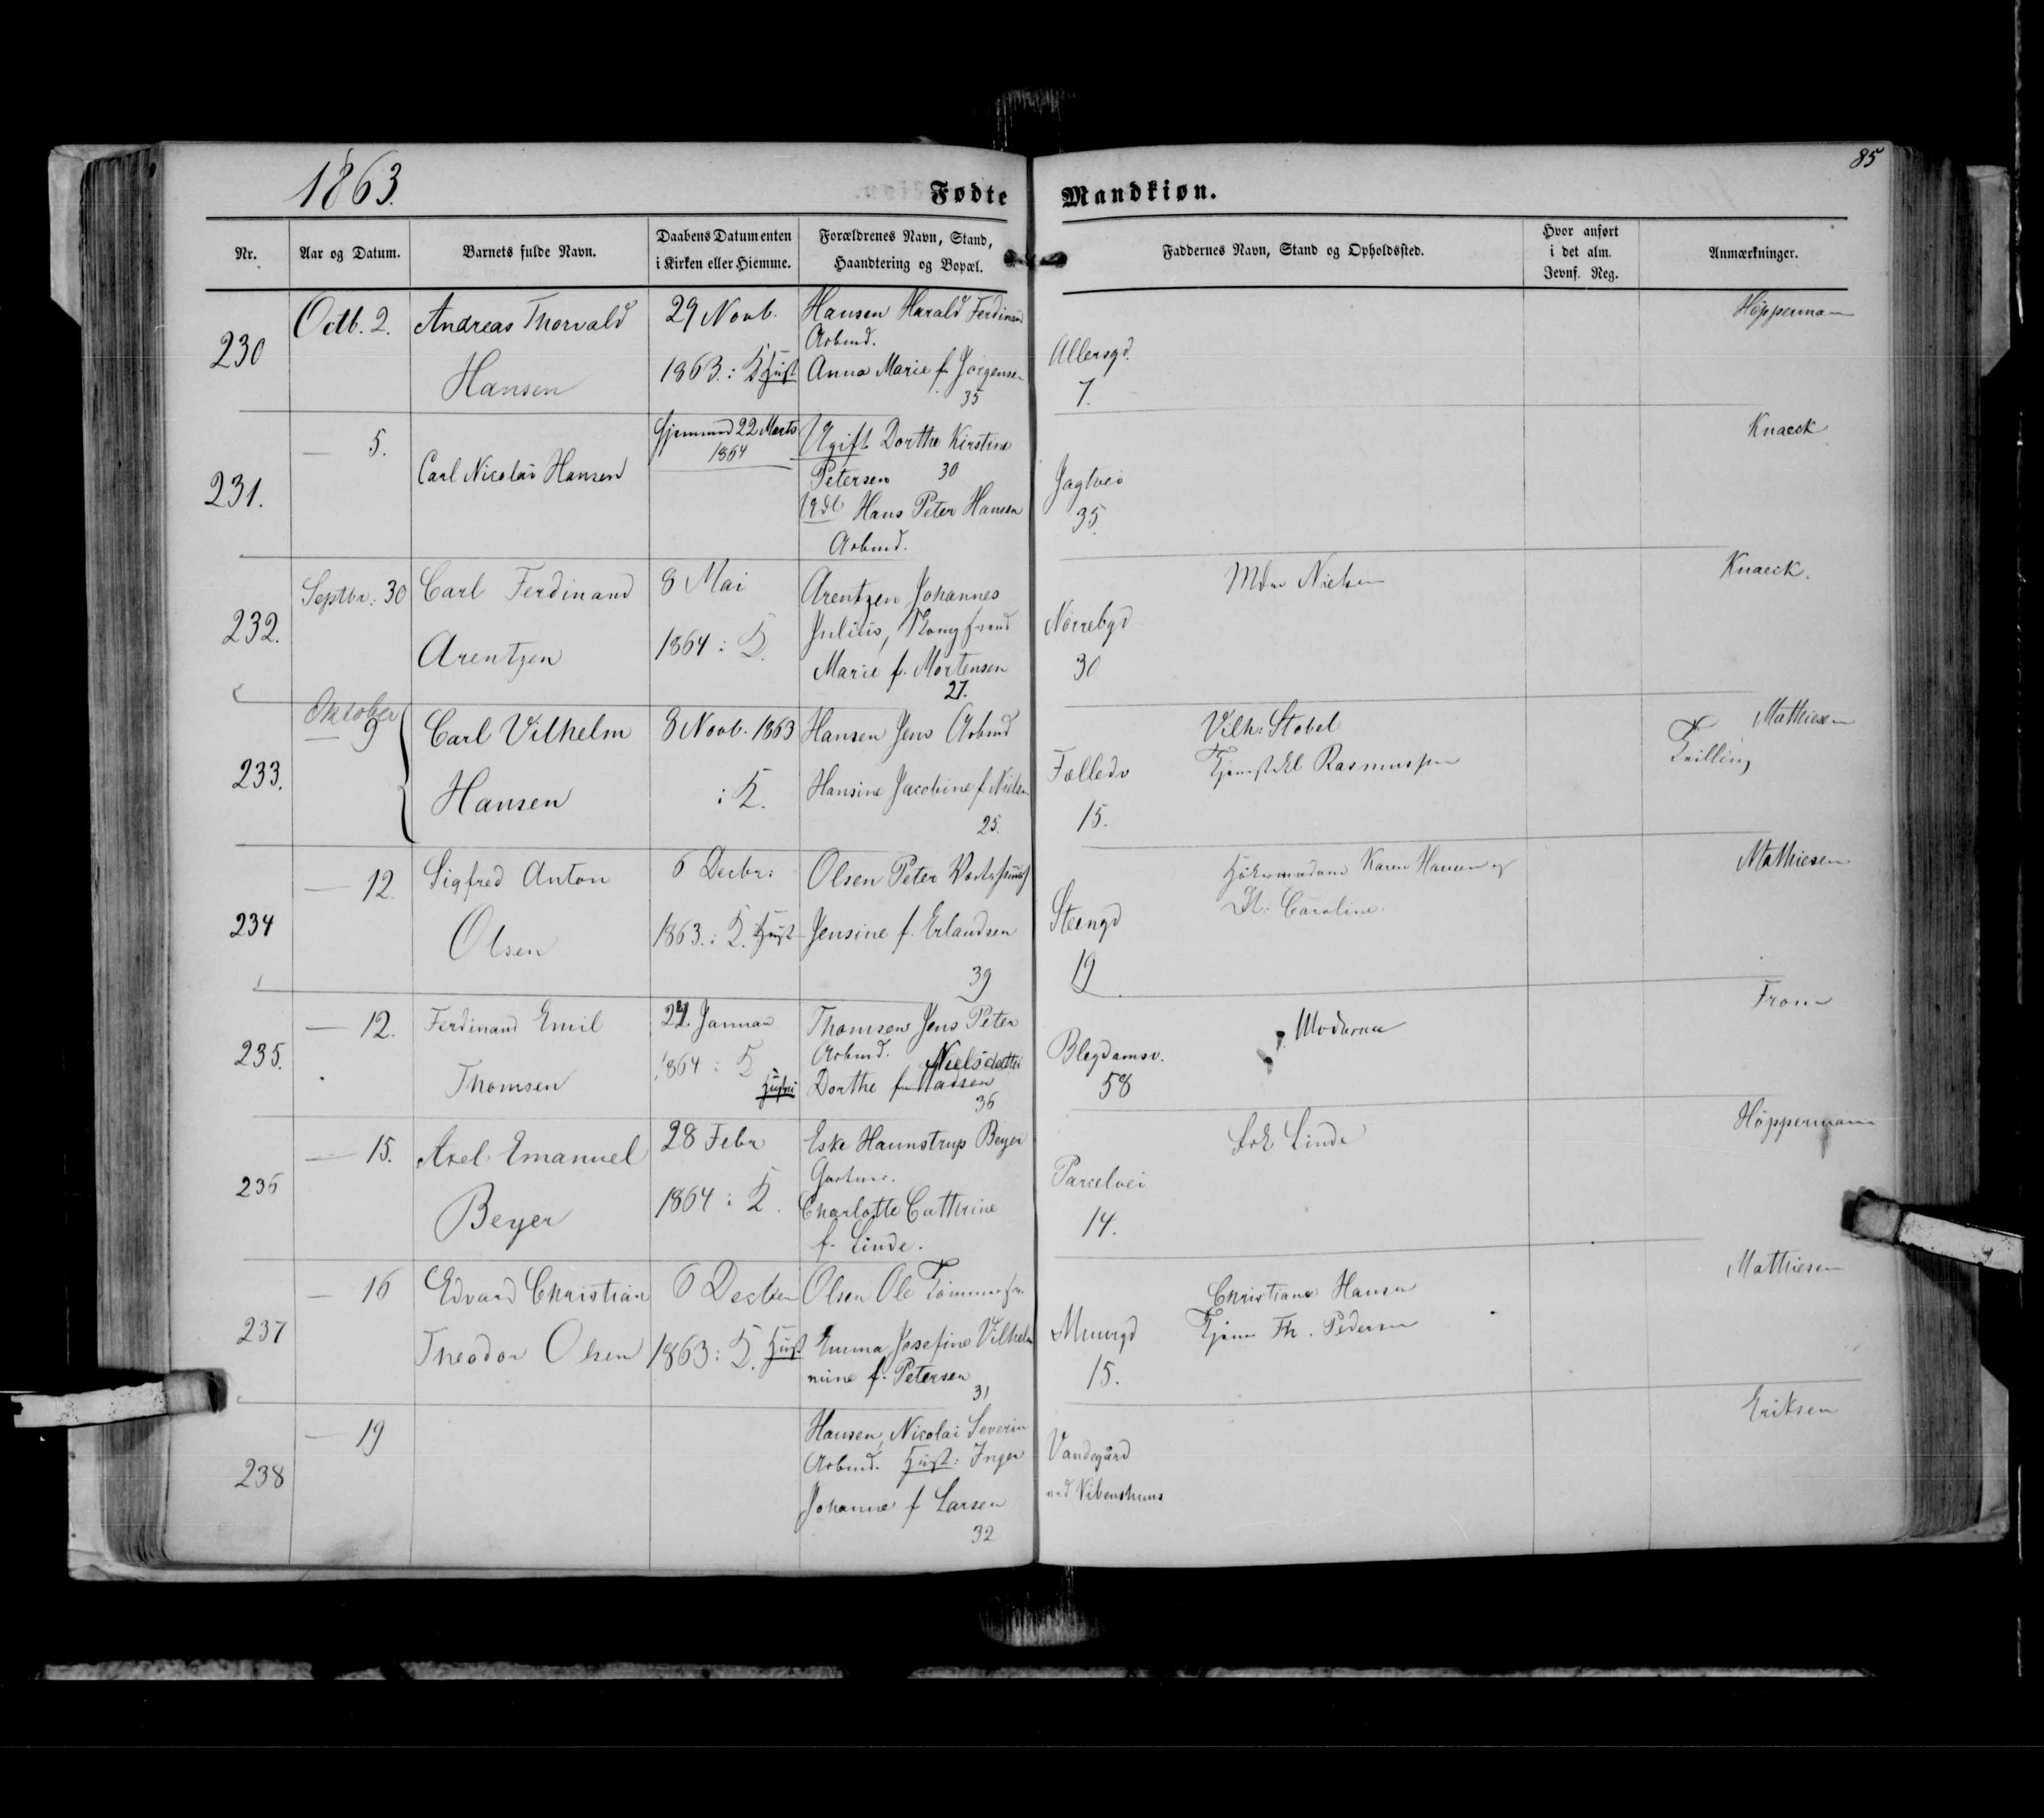 1863.
85
Fødte Mandkiøn.
Nr.
Aar og Datum.
Barnets fulde Navn.
Daabens Datum enten
i Kirken eller Hiemme.
Forældrenes Navn, Stand,
Haandtering og Bopæl.
Faddernes Navn, Stand og Opholdssted.
Hvor anført
i det alm.
Jevnf. Reg.
Anmærkninger.
230
Octb. 2.
Andreas Thorvald
Hansen
29 Novb.
1863. : K
Hansen Harald Ferdinand
Arbmd.
Anna Marie f. Jörgensen
35
Allersgd.
7.
Höpperman
231.
— 5.
Carl Nicolai Hansen
Hjemmed 22 Marts
1864
Ugift Dorthe Kirstine
Petersen 30
Udl Hans Peter Hansen
Arbmd.
Jagtvei
35
Knaeck
232.
Septbr. 30
Carl Ferdinand
Arentzen
8 Mai
1864 : K.
Arentzen Johannes
Julius,
Marie f. Mortensen
27.
Nörrebgd
30
Mdm Nielsen
Knaeck.
233.
Oktober
— 9
Carl Vilhelm
Hansen
8 Novb. 1863
: K.
Hansen Jens Arbmd
Hansine Jacobine f. Nielsen
25.
Fælledv
15.
Vilh: Stobel
Rasmussen
Mathiesen
Tvilling
234
— 12.
Sigfred Anton
Olsen
6 Decbr:
1863. : K.
Olsen Peter
Jensine f. Erlandsen
39
Steengd
19
Karen Hansen og
Caroline.
Mathiesen
235.
— 12.
Ferdinand Emil
Thomsen
24. Januar
1864 : K
Thomsen Jens Peter
Arbmd. Nielsdatter
Dorthe f. Madsen
36
Blegdamsv.
58
Moderen
From
236
— 15.
Axel Emanuel
Beyer
28 Febr
1864 : K.
Eske Haunstrup Beyer
Gartner.
Charlotte Cathrine
f. Linde.
Parcelvei
14.
Linde
Höppermann
237
— 16
Edvard Christian
Theodor Olsen
6 Decber
1863 : K.
Olsen Ole
Emma Josefine Vilhel
mine f. Petersen
31
Muurgd
15.
Christiane Hansen
Th. Pedersen
Mathiesen
238
— 19
Hansen, Nicolai Severin
Arbmd. Hust: Inger
Johanne f Larsen
32
Vandegård
ved Vibenshuus
Eriksen